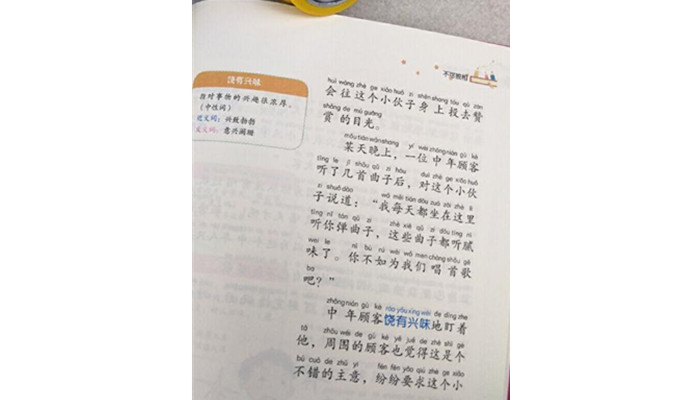 饶有兴味
指对事物的兴趣很浓厚。
（中性词）
近义词：兴致勃勃
反义词：意兴阑珊
huì wǎng zhè ge xiǎo huǒ zi shēn shang tóu qù zàn
会往这个小伙子身上投去赞
shǎng de mù guāng
赏的目光。
mǒu tiān wǎn shang yí wèi zhōng nián gù kè
某天晚上，一位中年顾客
tīng le jǐ shǒu qǔ zi hòu duì zhè ge xiǎo huǒ
听了几首曲子后，对这个小伙
zi shuō dào wǒ měi tiān dōu zuò zài zhè lǐ
子说道：“我每天都坐在这里
tīng nǐ tán qǔ zi zhè xiē qǔ zi dōu tīng nì
听你弹曲子，这些曲子都听腻
wèi le nǐ bù rú wèi wǒ men chàng shǒu gē
味了。你不如为我们唱首歌
ba
吧？”
zhōng nián gù kè ráo yǒu xìng wèi de dīng zhe
中年顾客饶有兴味地盯着
tā zhōu wéi de gù kè yě jué de zhè shì gè
他，周围的顾客也觉得这是个
bú cuò de zhǔ yi fēn fēn yāo qiú zhè ge xiǎo
不错的主意，纷纷要求这个小